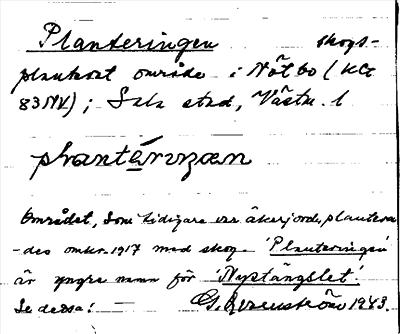 Planteringen skogs-
planterat område i Nötbo (KG
83NV); Sala stad, Västm. l
plantérızœn
Området, som tidigare var åkerjord, plantera-
-des omkr. 1917 med skog. 'Planteringen'
är yngre namn för 'Nystängslet'.
Se dessa! — G. 1943.